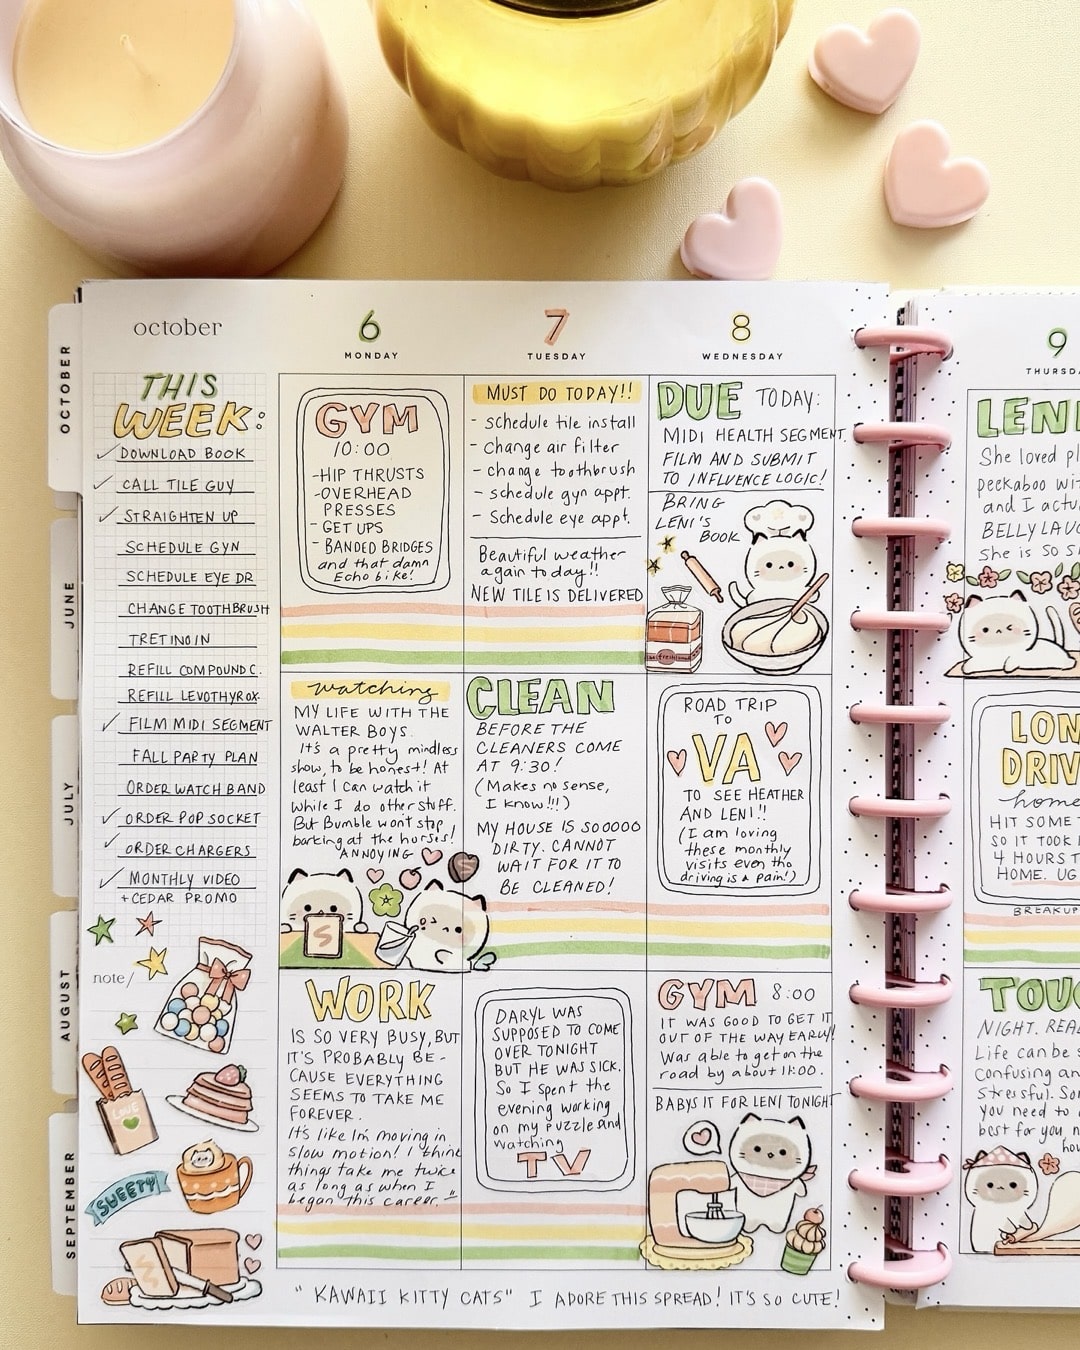 october
THIS
WEEK:
DOWNLOAD BOOK
CALL TILE GUY
STRAIGHTEN UP
SCHEDULE GYN
SCHEDULE EYE DR
CHANGE TOOTHBRUSH
TRETINOIN
REFILL COMPOUND C.
REFILL LEVOTHYROX
FILM MIDI SEGMENT
FALL PARTY PLAN
ORDER WATCH BAND
ORDER POP SOCKET
ORDER CHARGERS
MONTHLY VIDEO
+CEDAR PROMO
note/
LOVE
SWEETY
OCTOBER
JUNE
JULY
AUGUST
SEPTEMBER
6
MONDAY
GYM
10:00
-HIP THRUSTS
-OVERHEAD
PRESSES
- GET UPS
- BANDED BRIDGES
and that damn
Echo bike!
watching
MY LIFE WITH THE
WALTER BOYS.
It's a pretty mindless
show, to be honest! At
least I can watch it
while I do other stuff.
But Bumble won't stop
barking at the horses!
ANNOYING
WORK
IS SO VERY BUSY, BUT
IT'S PROBABLY BE-
CAUSE EVERYTHING
SEEMS TO TAKE ME
FOREVER.
It's like I'm moving in
slow motion! I think
things take me twice
as long as when I
began this career.
7
TUESDAY
MUST DO TODAY!!
- schedule tile install
- Change air filter
- change toothbrush
- schedule gyn appt.
- Schedule eye appt.
Beautiful weather
again today!!
NEW TILE IS DELIVERED
CLEAN
BEFORE THE
CLEANERS COME
AT 9:30!
(Makes no sense,
I know!!!)
MY HOUSE IS SOOOOO
DIRTY. CANNOT
WAIT FOR IT TO
BE CLEANED!
DARYL WAS
SUPPOSED TO COME
OVER TONIGHT
BUT HE WAS SICK.
So I spent the
evening working
on my puzzle and
watching
TV
8
WEDNESDAY
DUE TODAY:
MIDI HEALTH SEGMENT.
FILM AND SUBMIT
TO INFLUENCE LOGIC!
BRING
LENI'S
BOOK
ROAD TRIP
TO
VA
TO SEE HEATHER
AND LENI!!
(I am loving
these monthly
visits even tho
driving is a pain!)
GYM 8:00
IT WAS GOOD TO GET IT
OUT OF THE WAY EARLY!
Was able to get on the
road by about 11:00.
BABYSIT FOR LENI TONIGHT
9
THURSDA
LENI
She loved pl
peekaboo wi
and I actu
BELLY LAU
She is SO S
LON
DRIV
home
HIT SOME T
SO IT TOOK
4 HOURS T
HOME. UG
BREAKUP
TOU
NIGHT. REA
Life can be s
Confusing an
stressful. So
you need to
best for you n
hou
"KAWAII KITTY CATS" I ADORE THIS SPREAD! IT'S SO CUTE!